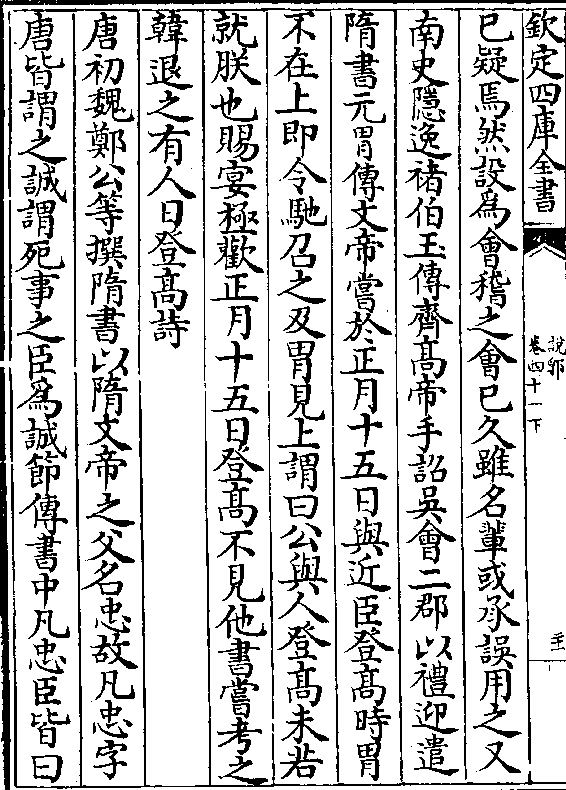 欽定四庫全書
說郛
卷四十一下
已疑焉然設為會稽之會已久雖名輩或承誤用之又
南史隱逸禇伯玉傳齊髙帝手詔吳會二郡以禮迎遣
隋書元胄傳文帝嘗於正月十五日與近臣登髙時胄
不在上即令馳召之及胄見上謂曰公與人登髙未若
就朕也賜宴極歡正月十五日登髙不見他書嘗考之
韓退之有人日登髙詩
唐初魏鄭公等撰隋書以隋文帝之父名忠故凡忠字
唐皆謂之誠謂死事之臣為誠節傳書中凡忠臣皆曰